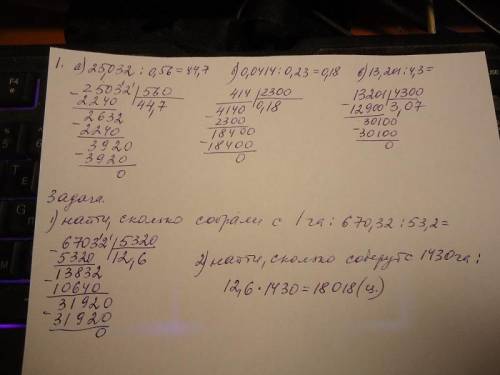 1. а) 25,032 : 0,56 = 44,7 б) 0,0414 : 0,23 = 0,18 в) 13,201 : 4,3 =
- 25032 | 560
2240 | 44,7
- 2632
2240
- 3920
- 3920
0
414 | 2300
4140 | 0,18
- 2300
18400
- 18400
0
13201 | 4300
- 12900 | 3,07
30100
- 30100
0
Задача.
1) найти, сколько собрали с 1 га : 670,32 : 53,2 =
- 67032 | 5320
5320 | 12,6
- 13832
10640
- 31920
31920
0
2) найти, сколько соберут с 1430 га :
12,6 · 1430 = 18018 (ц.)